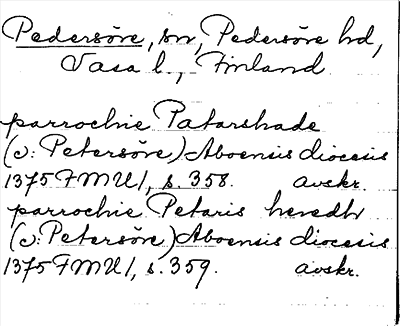 Pedersöre, sn, Pedersöre hd,
Vasa l., Finland
parrochie Patarshade
(ɔ: Petersöre) Aboensis diocesis
1375 FMU I, s. 358. avskr.
parrochie Petaris heredh
(ɔ: Petersöre) Aboensis diocesis
1375 FMU I, s. 359. avskr.